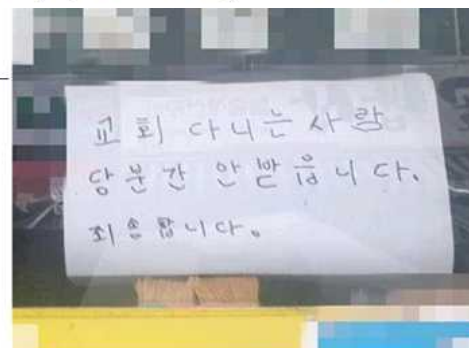 교회 다니는 사람
당분간 안 받읍니다.
죄송합니다.